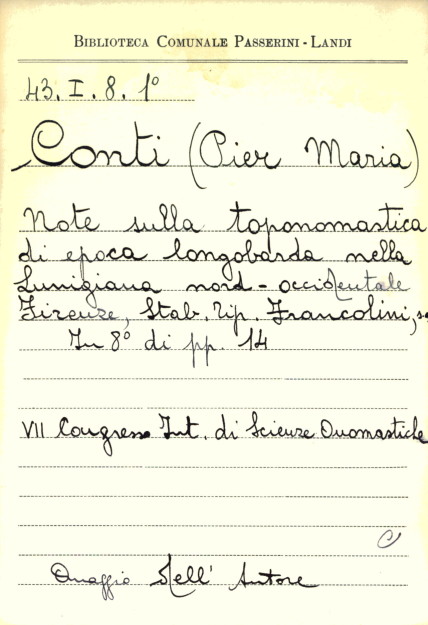 BIBLIOTECA COMUNALE PASSERINI - LANDI
43. I. 8. 1°
Conti (Pier Maria)
Note sulla toponomastica
di epoca longobarda nella
Lunigiana nord-occidentale
Firenze, Stab. Tip. Francolini,
In 8° di pp. 14
VII Congresso Int. di Scienze Onomastiche
C
Omaggio dell' Autore